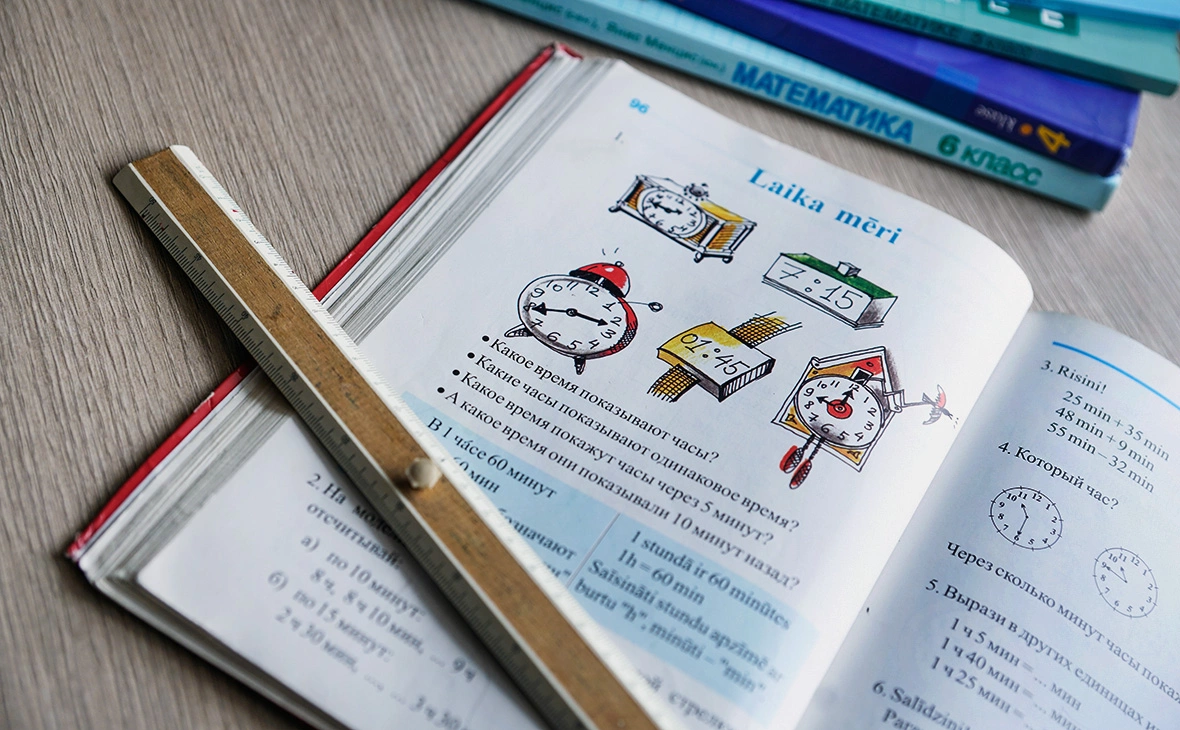 МАТЕМАТИКЕ
МАТЕМАТИКА 6 класс
4 klase
96
1.
Laika mēri
7:15
01:45
• Какое время показывают часы?
• Какие часы показывают одинаковое время?
• Какое время покажут часы через 5 минут?
• А какое время они показывали 10 минут назад?
В 1 ча́се 60 минут
60 мин
обозначают
1 stundā ir 60 minūtes
1h = 60 min
Saīsināti stundu apzīmē ar
burtu "h", minūti – "min"
2. На
отсчитывай:
а) по 10 минут:
8 ч, 8 ч 10 мин, ... 9 ч
б) по 15 минут:
2 ч 30 мин, ..., ... 3 ч 30
3. Risini!
25 min + 35 min
48 min + 9 min
55 min – 32 min
4. Который час?
Через сколько минут часы
5. Вырази в других единицах
1 ч 5 мин = ... мин
1 ч 40 мин = ... мин
1 ч 25 мин = ...
6.